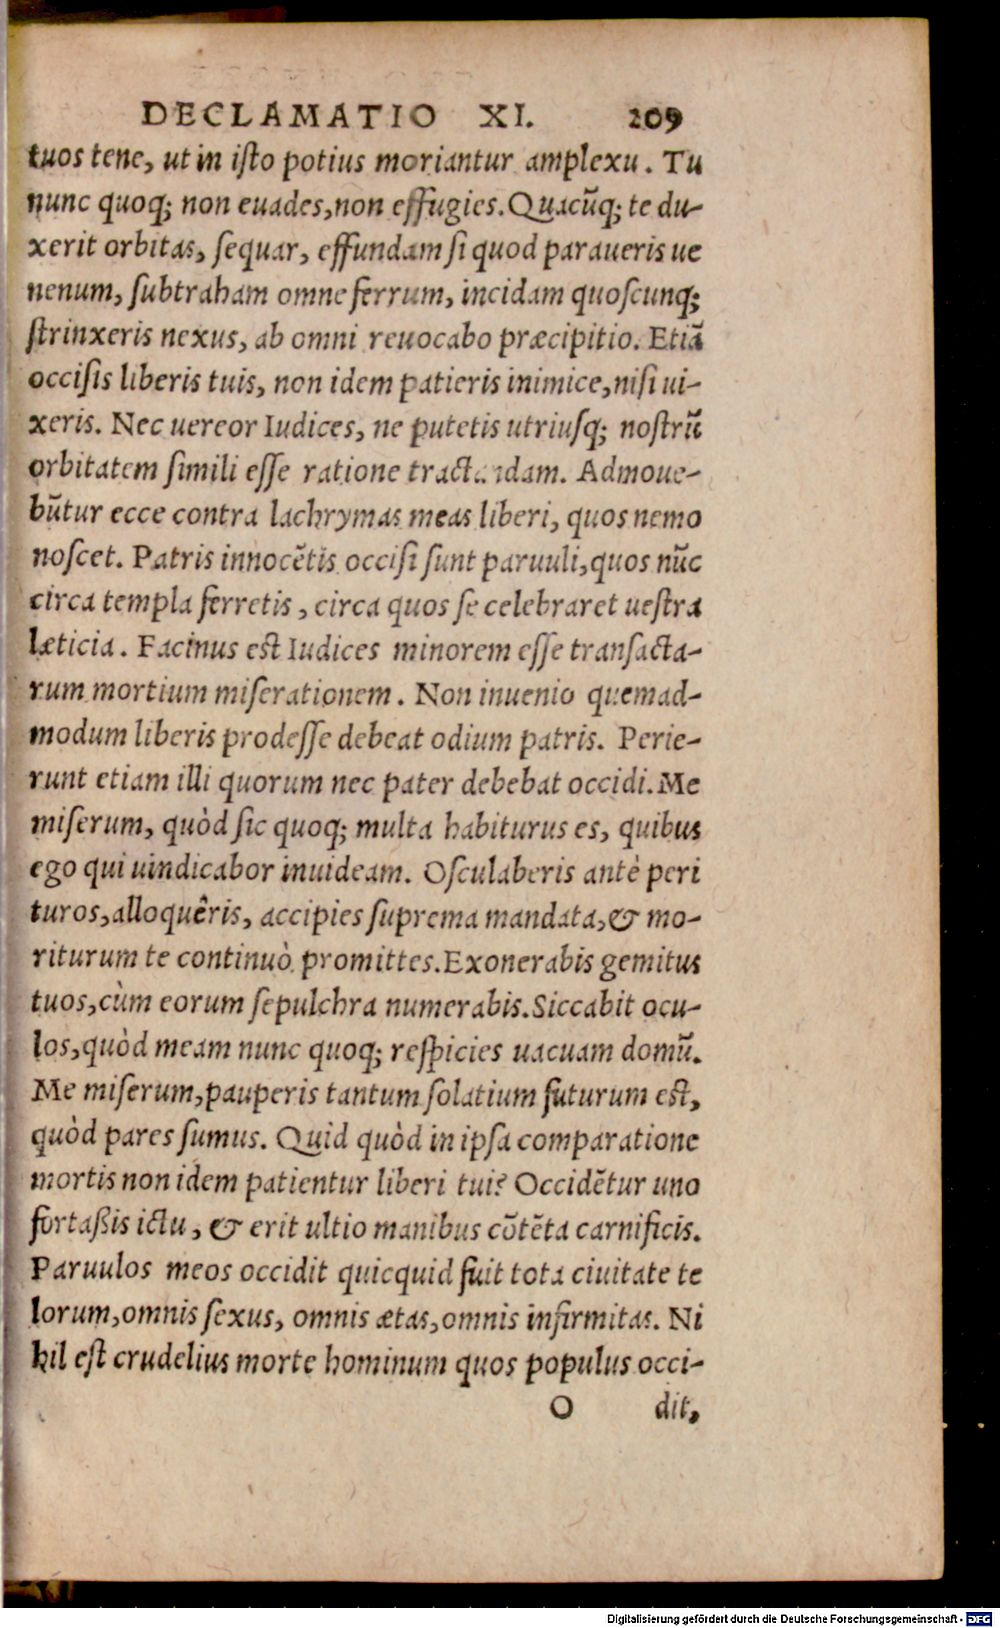 DECLAMATIO XI. 209
tuos tene, ut in iſto potius moriantur amplexu. Tu
nunc quoq; non euades, non effugies. Quacūq; te du-
xerit orbitas, ſequar, effundam ſi quod paraueris ue
nenum, ſubtraham omne ferrum, incidam quoſcunq;
ſtrinxeris nexus, ab omni reuocabo præcipitio. Etiā
occiſis liberis tuis, non idem patieris inimice, niſi ui-
xeris. Nec uereor Iudices, ne putetis utriuſq; noſtrū
orbitatem ſimili eſſe ratione tractandam. Admoue-
būtur ecce contra lachrymas meas liberi, quos nemo
noſcet. Patris innocētis occiſi ſunt paruuli, quos nūc
circa templa ferretis, circa quos ſe celebraret ueſtra
læticia. Facinus eſt Iudices minorem eſſe tranſacta-
rum mortium miſerationem. Non inuenio quemad-
modum liberis prodeſſe debeat odium patris. Perie-
runt etiam illi quorum nec pater debebat occidi. Me
miſerum, quòd ſic quoq; multa habiturus es, quibus
ego qui uindicabor inuideam. Oſculaberis antè peri
turos, alloquêris, accipies ſuprema mandata, & mo-
riturum te continuò promittes. Exonerabis gemitus
tuos, cùm eorum ſepulchra numerabis. Siccabit ocu-
los, quòd meam nunc quoq; reſpicies uacuam domū.
Me miſerum, pauperis tantum ſolatium futurum eſt,
quòd pares ſumus. Quid quòd in ipſa comparatione
mortis non idem patientur liberi tui? Occidētur uno
fortaßis ictu, & erit ultio manibus cōtēta carnificis.
Paruulos meos occidit quicquid fuit tota ciuitate te
lorum, omnis ſexus, omnis ætas, omnis infirmitas. Ni
hil eſt crudelius morte hominum quos populus occi-
O dit,
Digitalisierung gefördert durch die Deutsche Forschungsgemeinschaft - DFG